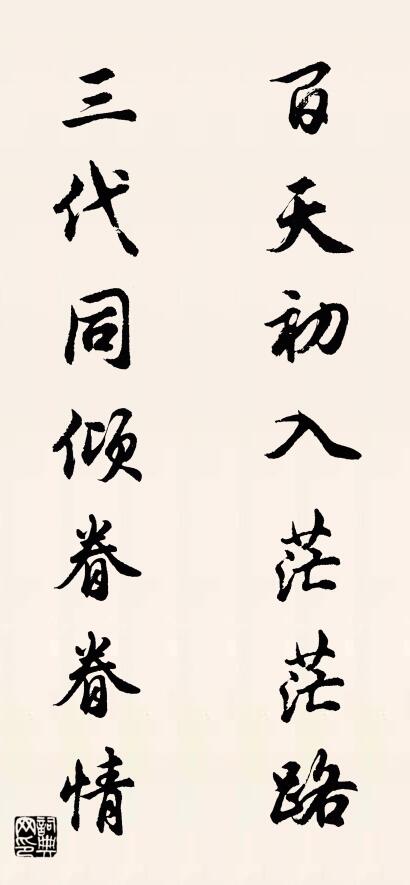 百天初入茫茫路
三代同倾眷眷情
詞典网印